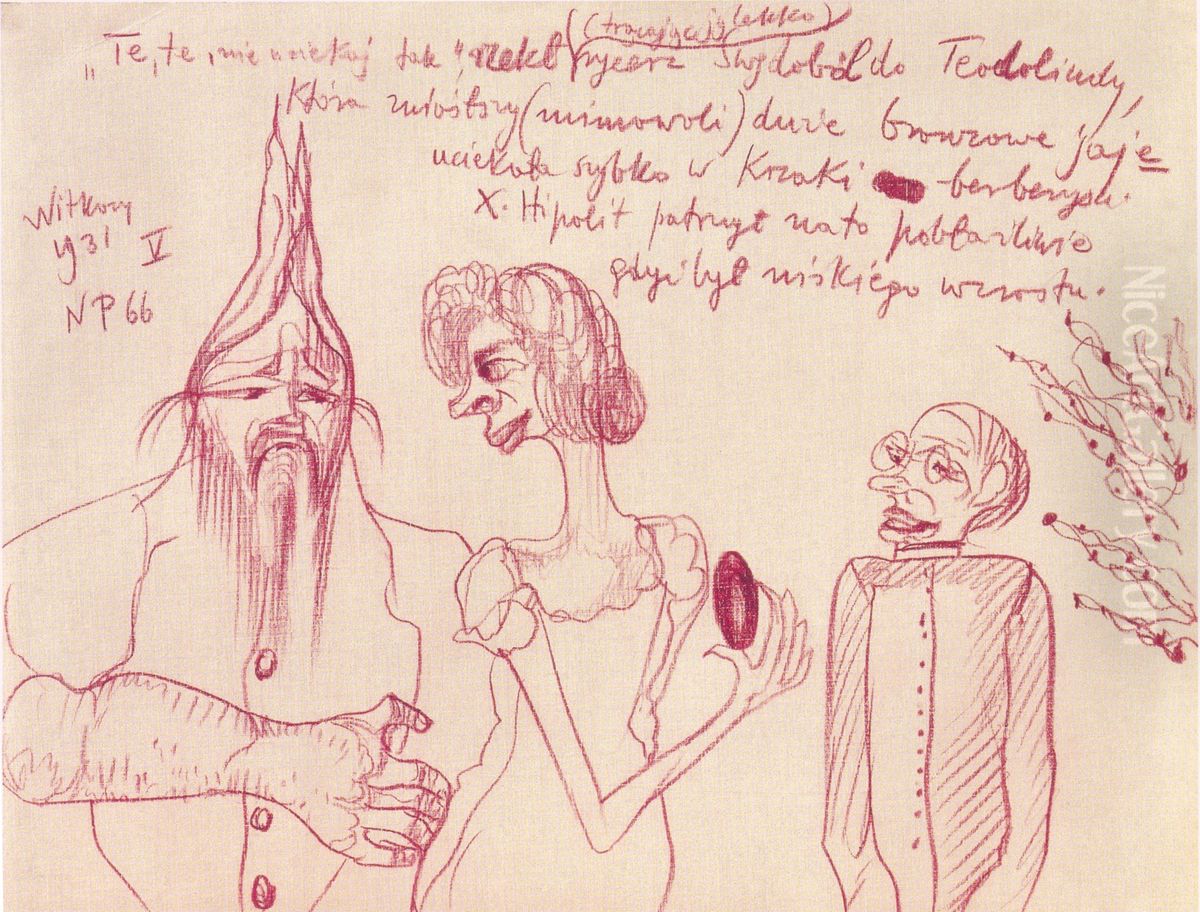 (trącając ją lekko)
„Te, te, nie uciekaj tak", rzekł rycerz Swojdoból do Teodolindy,
która zniósłszy (mimowoli) duże bronzowe jaje
uciekała szybko w krzaki berberysu.
X. Hipolit patrzył na to pobłażliwie
gdyż był niskiego wzrostu.
Witkacy
1931
V
NP 66